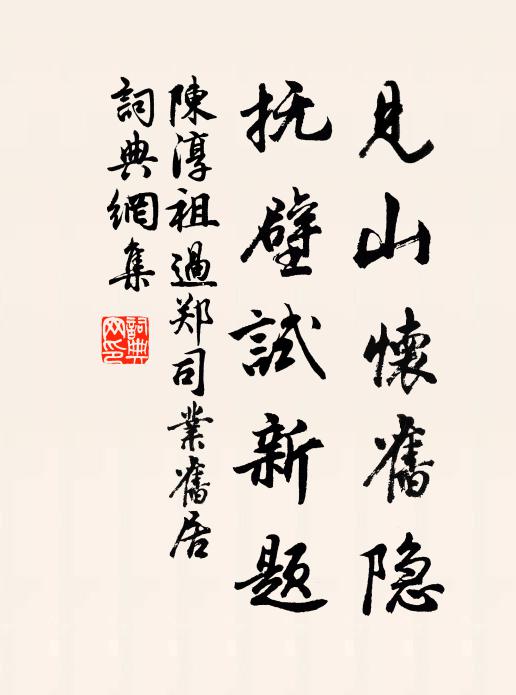 见山懷舊隐
抚壁試新题
陳淳祖過郑司業舊居
詞典網集
詞典网印